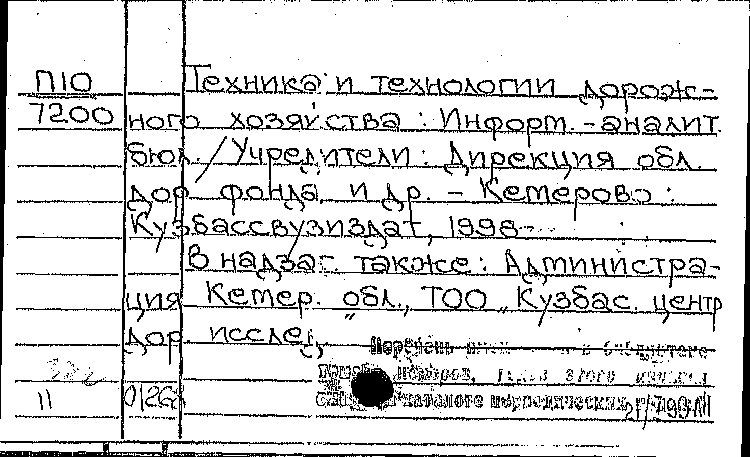 П10 Техника и технологии дорож-
7200 ного хозяйства : Информ.-аналит.
бюл. / Учредители : Дирекция обл.
дор. фонда и др. – Кемерово :
Кузбассвузиздат, 1998-
В надзаг. также : Администра-
ция Кемер. обл., ТОО „Кузбас. центр
дор. исслед.
Перечень в библиотеке
номеров, этого
каталоге периодических
11